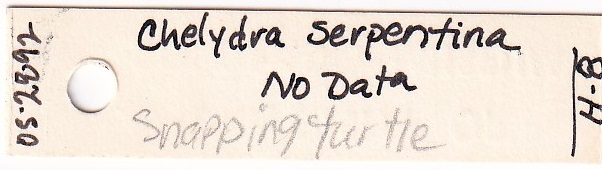 OS-2892
Chelydra serpentina
No Data
Snapping turtle
H-8